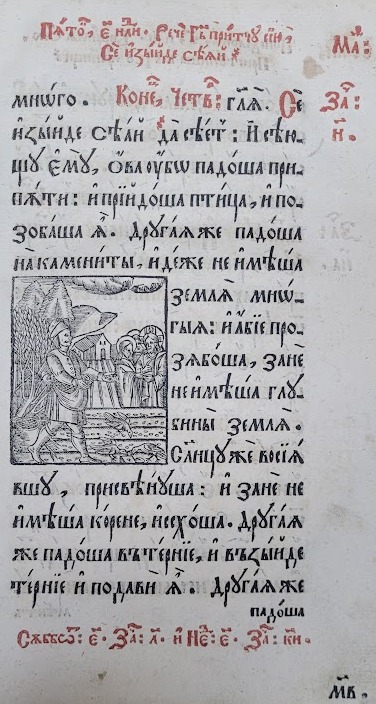 Пѧто҃, є҃ нд҃ли. Рече Гь҃ при́тчу сїю̀,
Се и҆зы́йде сѣѧй
Ма҃:
мнѡ́го. Коне҃, Четв҃: гл҃ѧ. Се
За҃:
и҆зы́йде сѣ́ѧй да сѣ́етъ: И҆ сѣ́ю-
н҃.
щу є҆мꙋ̀, ѻ҆́ва ᲂу҆́бѡ падо́ша при
пꙋтѝ: и҆ прїидо́ша птица, и҆ по-
зоба́ша ѧ҆̀. Друга́ѧ же падо́ша
на ка́мениты, и҆дѣ́же не и҆мѣ́ша
землѧ̀ мнѡ́-
гыѧ: и҆ а҆́бїе про-
зѧбо́ша, занѐ
не и҆мѣ́ша глу-
бины̀ землѧ̀.
Сл҃нцу же восїѧ́
вшу, присвѣ́нуша: и҆ занѐ не
и҆мѣ́ша ко́рене, и҆схо́ша. Друга́ѧ
же падо́ша въ те́рнїе, и҆ възы́йде
те́рнїе и҆ подавѝ ѧ҆̀. Друга́ѧ же
падо́ша
За҃: л҃. и҆ Не҃: є҃. За҃: ки҃.
мв҃.